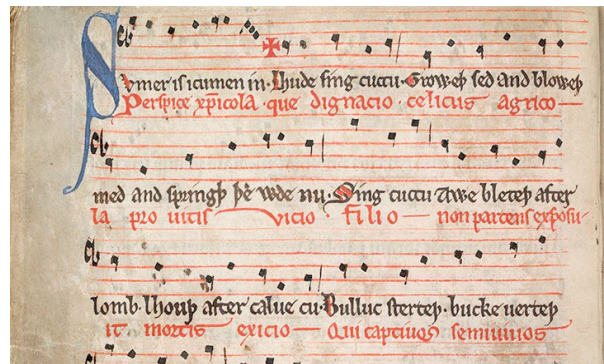 Sumer is icumen in · Lhude sing cuccu · Groweþ sed and bloweþ
Perspice xp̄icola · que dignacio · celicus agrico
med and springþ þe wde nu · Sing cuccu Awe bleteþ after
la pro uitis vicio · filio non parcens exposu-
lomb · lhouþ after calue cu · Bulluc sterteþ · bucke uerteþ
it mortis exicio Qui captiuos semiuiuos